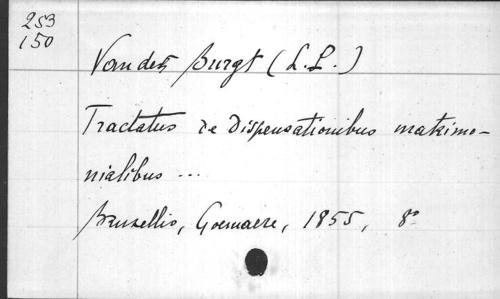 253
150
Van der Burgt (L.L.)
Tractatus de dispensationibus matrimo-
nialibus ...
Bruxellis, Goemaere, 1855, 8°